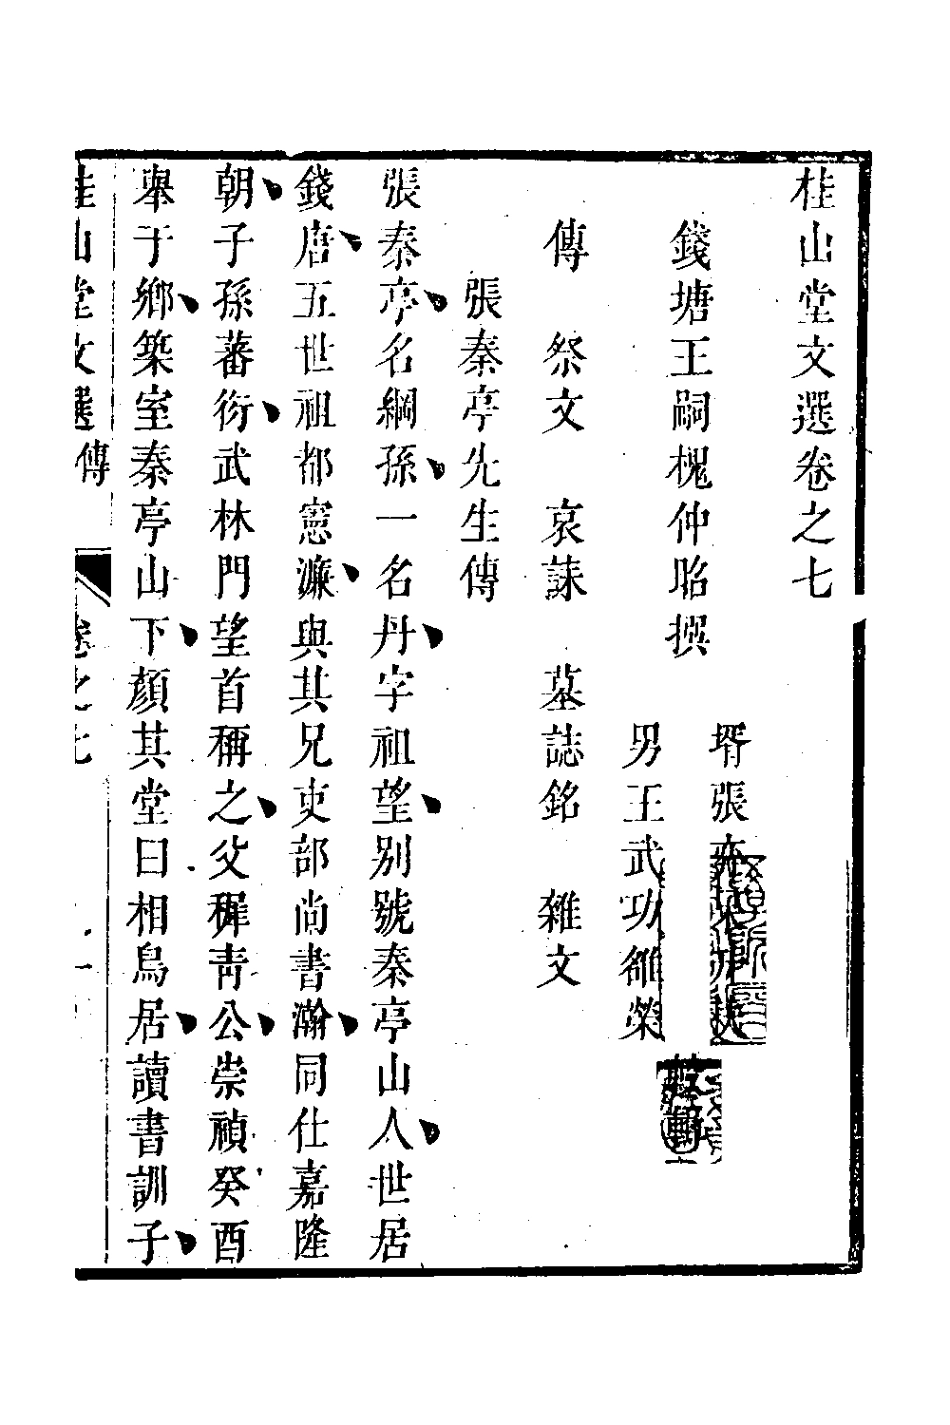 桂山堂文選卷之七
錢塘王嗣槐仲昭撰
壻張亦
男王武功雒榮
傳　祭文　哀誄　墓誌銘　雜文
張秦亭先生傳
張秦亭名綱孫一名丹字祖望別號秦亭山人世居
錢唐五世祖都憲濂與其兄吏部尚書瀚同仕嘉隆
朝子孫蕃衍武林門望首稱之父穉青公崇禎癸酉
舉于鄉築室秦亭山下顏其堂曰相鳥居讀書訓子
桂山堂文選　傳　卷之七　一